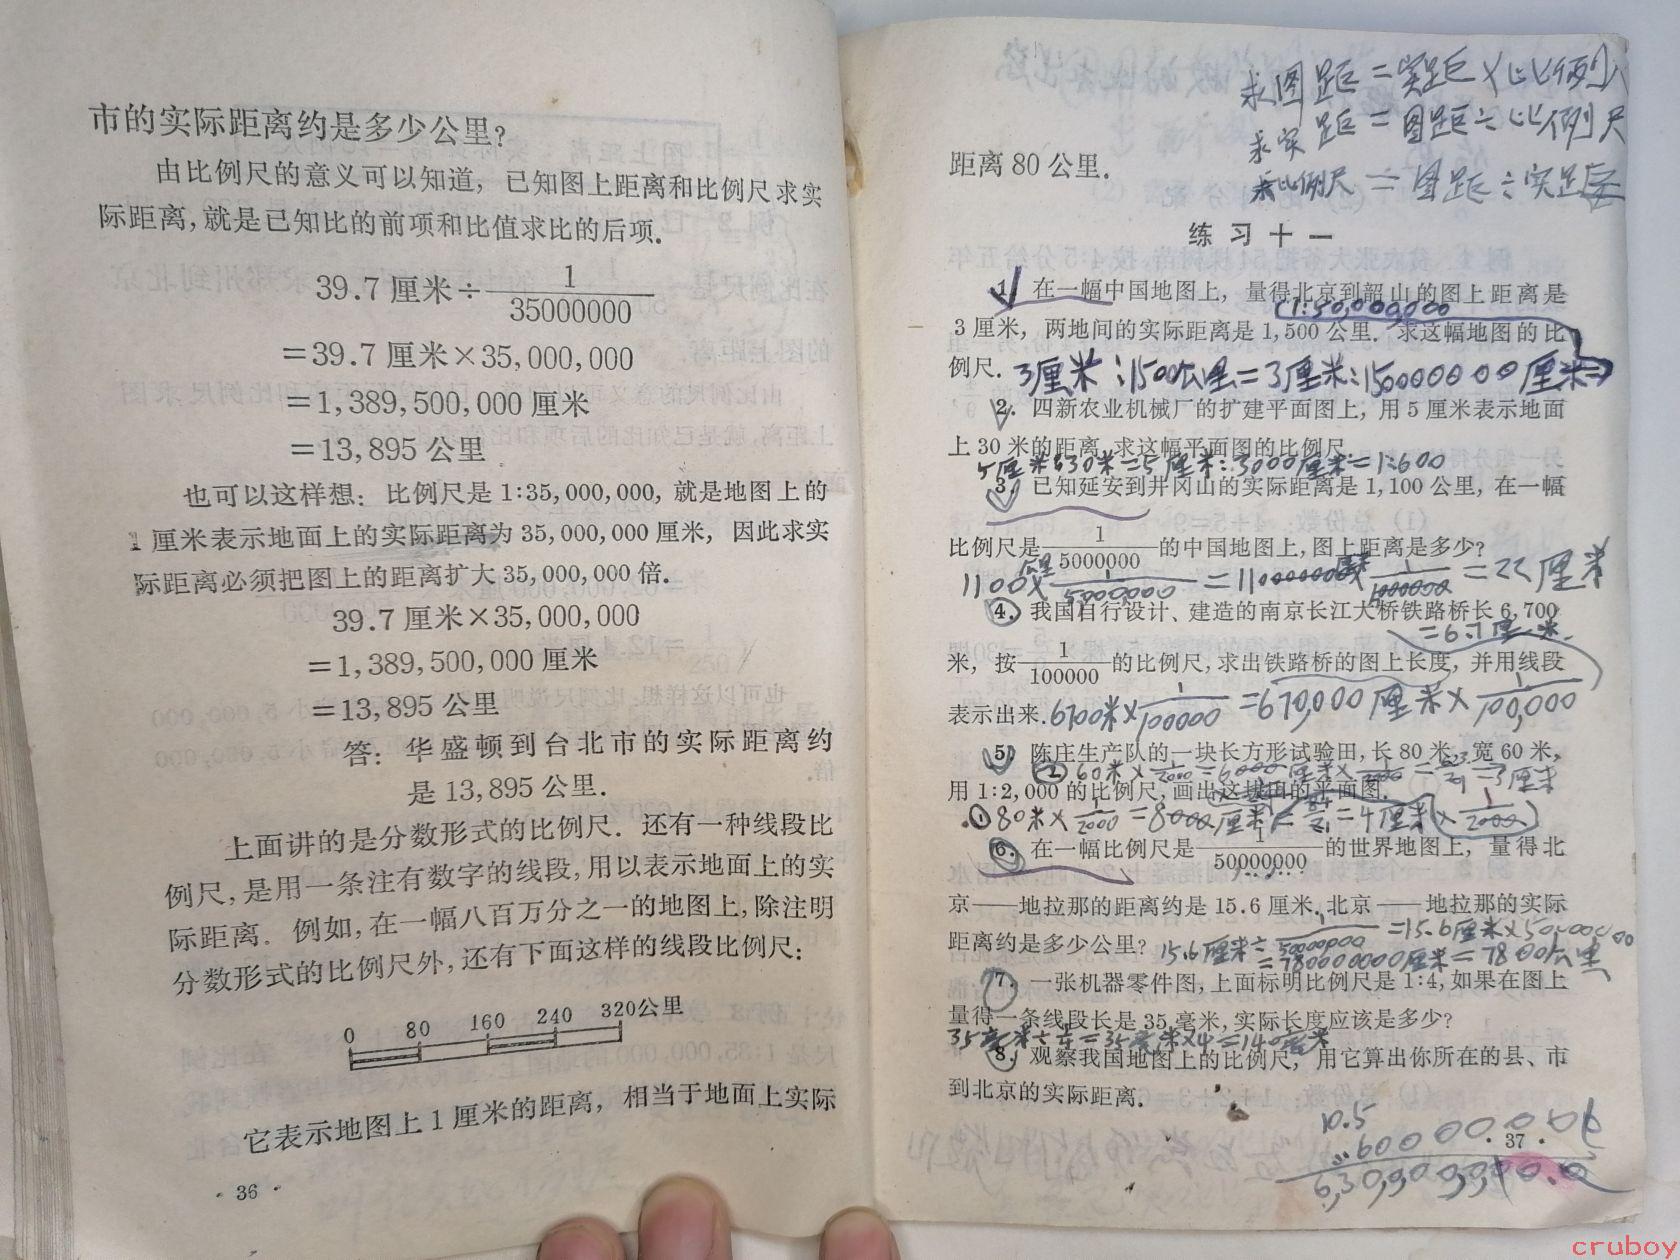 市的实际距离约是多少公里?
由比例尺的意义可以知道, 已知图上距离和比例尺求实
际距离, 就是已知比的前项和比值求比的后项.
39.7 厘米÷1/35000000
=39.7 厘米×35,000,000
=1,389,500,000 厘米
=13,895 公里
也可以这样想: 比例尺是 1:35,000,000, 就是地图上的
1 厘米表示地面上的实际距离为 35,000,000 厘米, 因此求实
际距离必须把图上的距离扩大 35,000,000 倍.
39.7 厘米×35,000,000
=1,389,500,000 厘米
=13,895 公里
答: 华盛顿到台北市的实际距离约
是 13,895 公里.
上面讲的是分数形式的比例尺. 还有一种线段比
例尺, 是用一条注有数字的线段, 用以表示地面上的实
际距离. 例如, 在一幅八百万分之一的地图上, 除注明
分数形式的比例尺外, 还有下面这样的线段比例尺:
0 80 160 240 320公里
它表示地图上 1 厘米的距离, 相当于地面上实际
· 36 ·
求图距=实距×比例尺
求实距=图距÷比例尺
求比例尺=图距÷实距
距离 80 公里.
练习十一
1. 在一幅中国地图上, 量得北京到韶山的图上距离是
1:50,000,000
3 厘米, 两地间的实际距离是 1,500 公里. 求这幅地图的比
例尺. 3厘米:1500公里=3厘米:150000000厘米=
2. 四新农业机械厂的扩建平面图上, 用 5 厘米表示地面
上 30 米的距离, 求这幅平面图的比例尺.
5厘米:30米=5厘米:3000厘米=1:600
3. 已知延安到井冈山的实际距离是 1,100 公里, 在一幅
比例尺是1/5000000的中国地图上, 图上距离是多少?
1100公里×1/5000000=110000000厘米×1/5000000=22厘米
4. 我国自行设计、建造的南京长江大桥铁路桥长 6,700
=6.7厘米
米, 按1/100000的比例尺, 求出铁路桥的图上长度, 并用线段
表示出来. 6700米×1/100000=670,000厘米×1/100,000
5. 陈庄生产队的一块长方形试验田, 长 80 米, 宽 60 米,
②60米×1/2000=6000厘米×1/2000=3厘米
用 1:2,000 的比例尺, 画出这块田的平面图.
①80米×1/2000=8000厘米=4厘米 ×1/2000
6. 在一幅比例尺是1/50000000的世界地图上, 量得北
京——地拉那的距离约是 15.6 厘米. 北京——地拉那的实际
距离约是多少公里? 15.6厘米÷1/50000000=15.6厘米×50,000,000
=780000000厘米=7800公里
7. 一张机器零件图, 上面标明比例尺是 1:4, 如果在图上
量得一条线段长是 35 毫米, 实际长度应该是多少?
35毫米÷1/4=35毫米×4=140毫米
8. 观察我国地图上的比例尺, 用它算出你所在的县、市
到北京的实际距离.
10.5
· 37 ·
cruboy